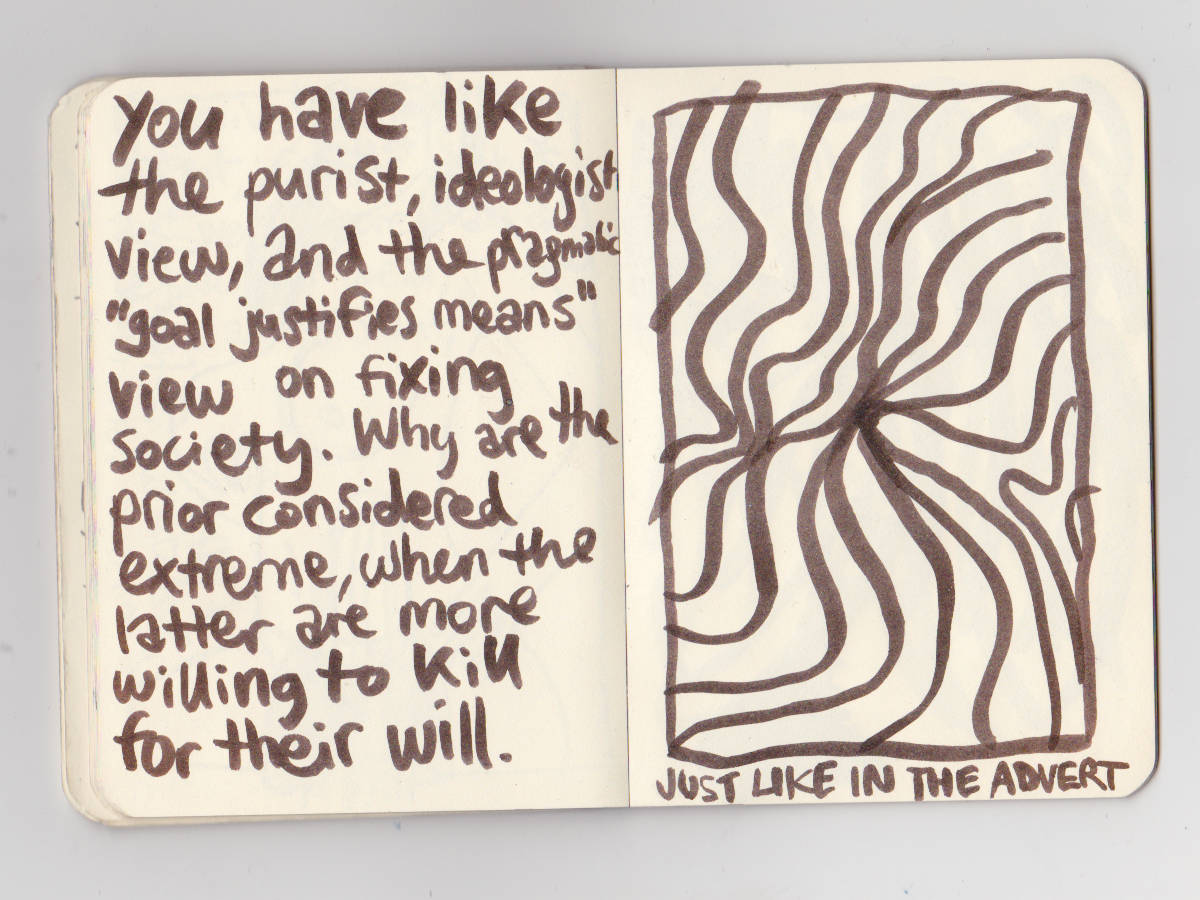 you have like
the purist, ideologist
view, and the pragmatic
"goal justifies means"
view on fixing
society. Why are the
prior considered
extreme, when the
latter are more
willing to kill
for their will.
JUST LIKE IN THE ADVERT